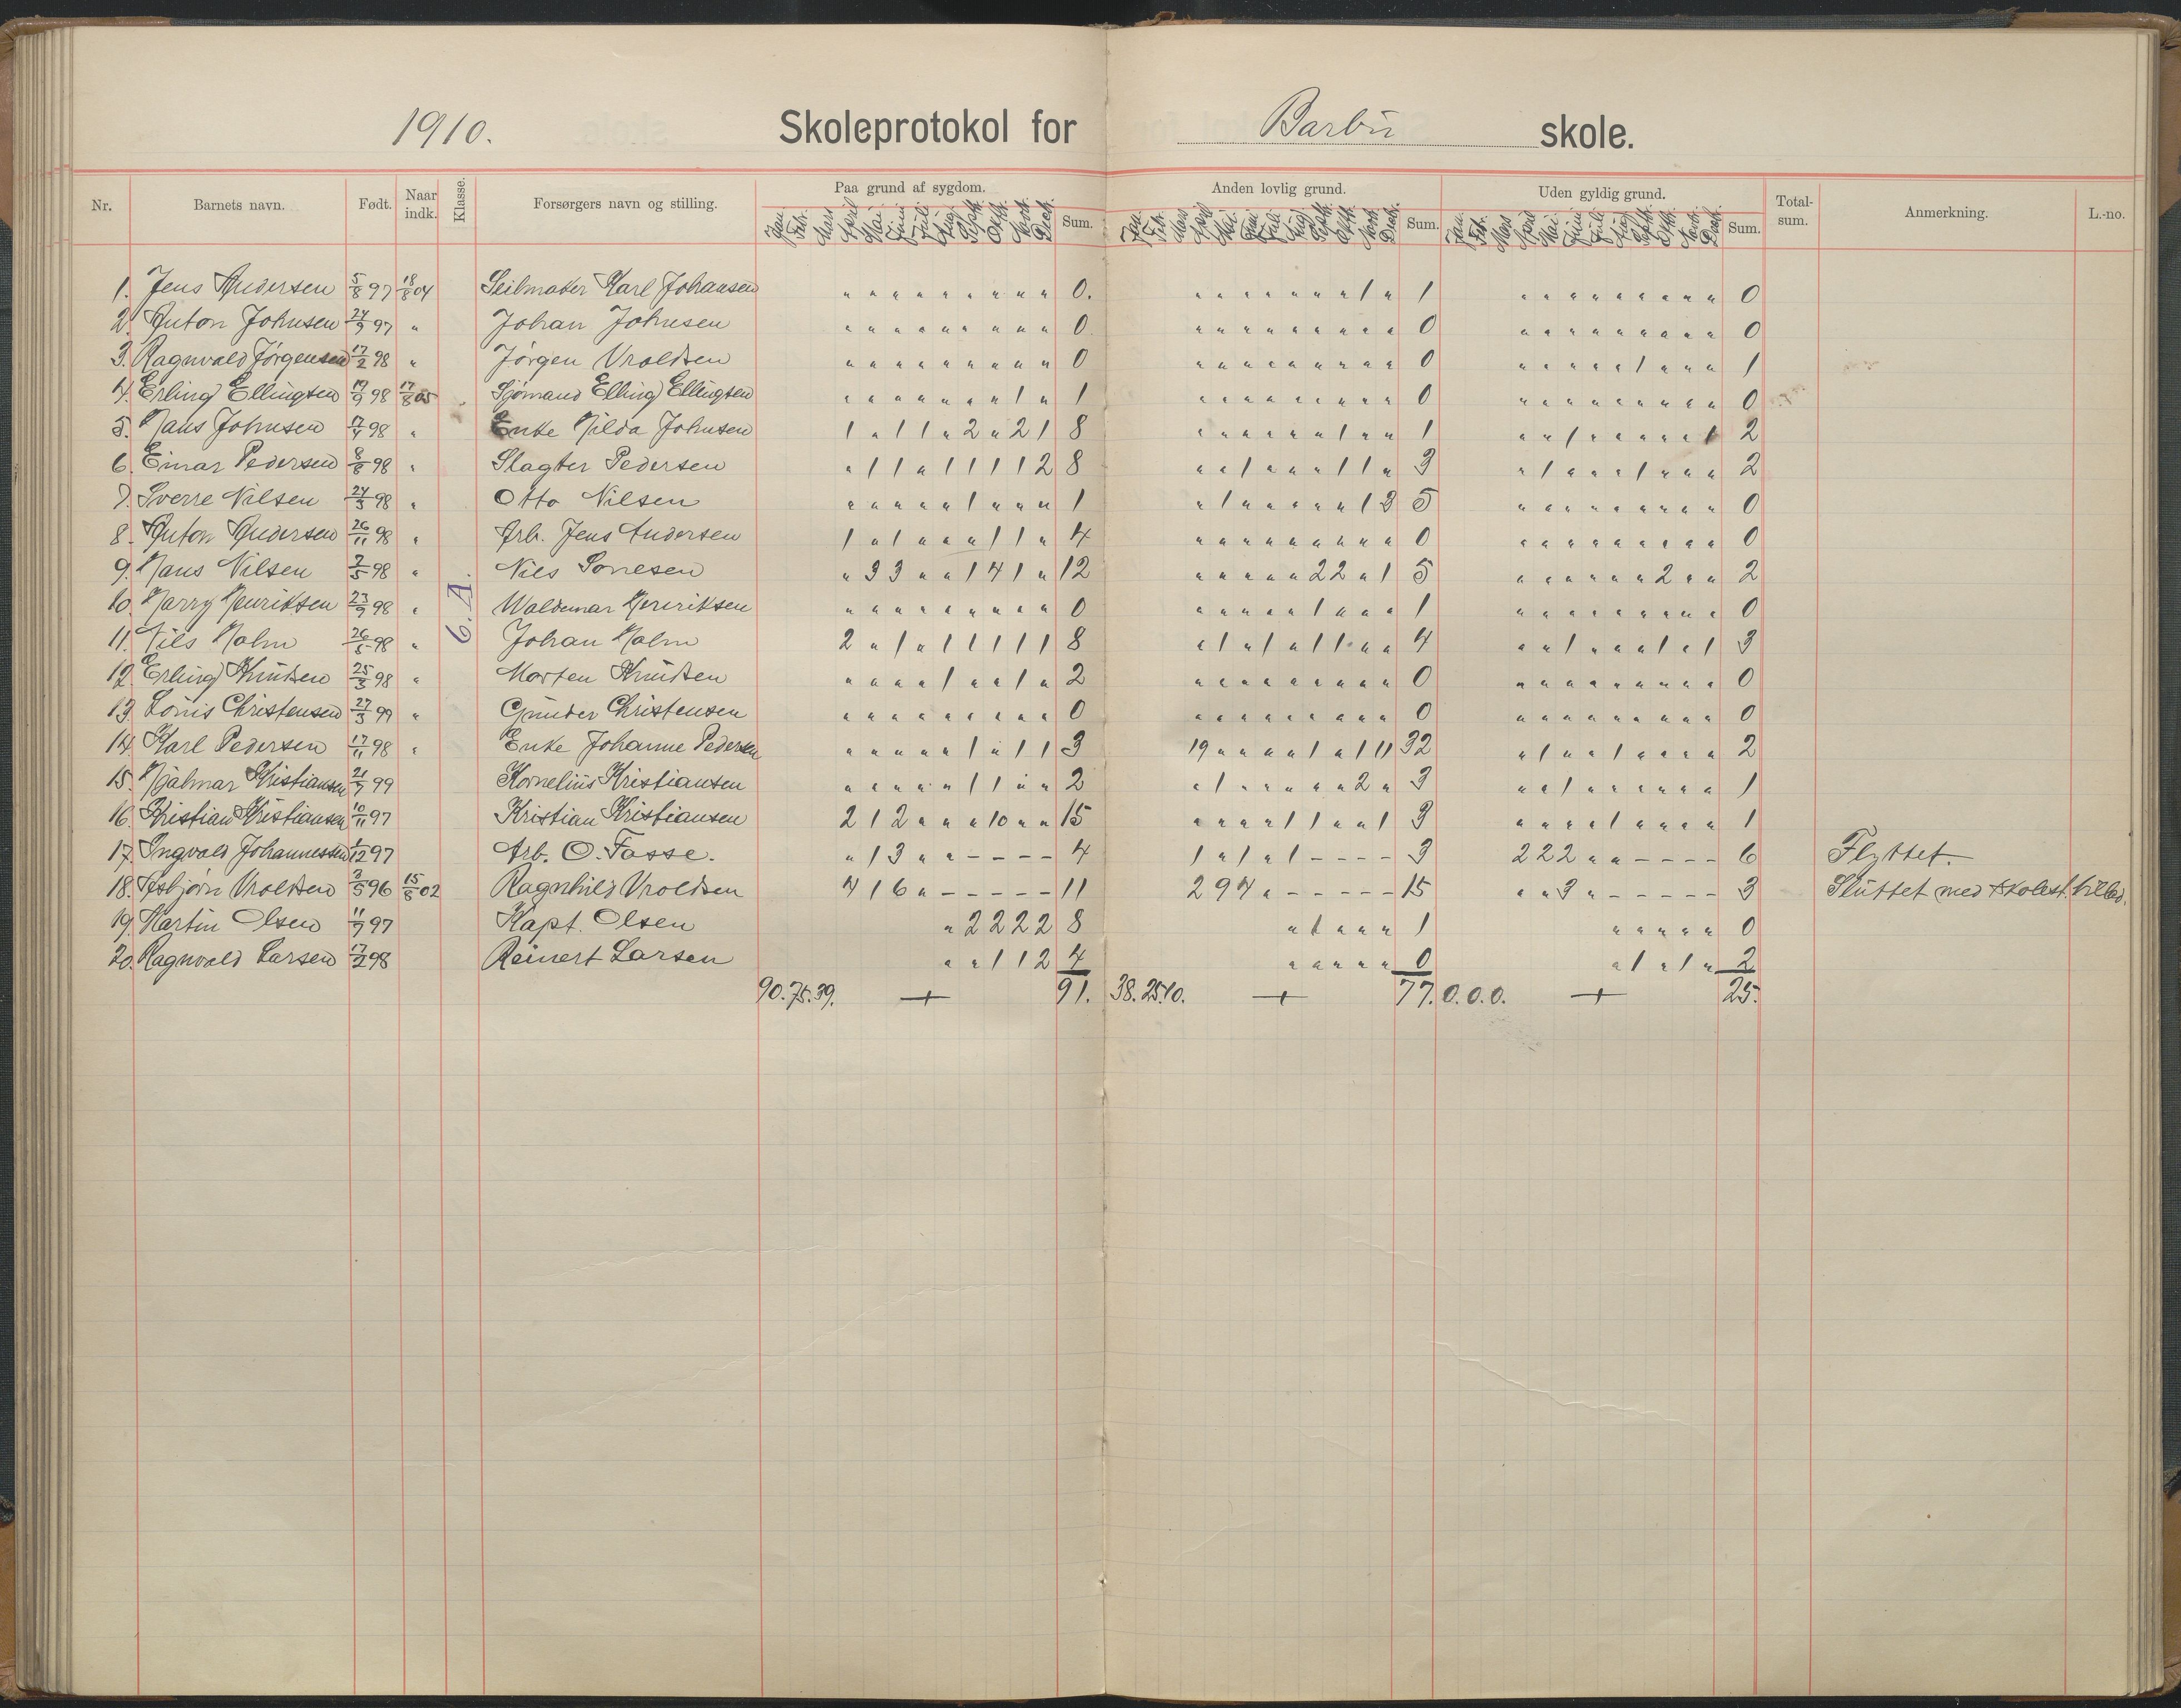 1910. Skoleprotokol for Barbu skole.
Nr. Barnets navn. Født. Naar indk. Klasse. Forsørgers navn og stilling. Paa grund af sygdom. Anden lovlig grund. Uden gyldig grund. Total-sum. Anmerkning. L.-no.
Jan. Febr. Mars April Mai Juni Juli Aug. Septr. Oktr. Novbr. Decbr. Sum. Jan. Febr. Mars April Mai Juni Juli Aug. Septr. Oktr. Novbr. Decbr. Sum. Jan. Febr. Mars April Mai Juni Juli Aug. Septr. Oktr. Novbr. Decbr. Sum.
1. Jens Andersen 5/8 97 18/8 04 Seilmaker Karl Johansen " " " " " " " " " 0. " " " " " " " 1 " 1 " " " " " " " " " 0
2. Anton Johnsen 24/9 97 " Johan Johnsen " " " " " " " " " 0 " " " " " " " " " 0 " " " " " " " " " 0
3. Ragnvald Jørgensen 17/2 98 " Jørgen Vroldsen " " " " " " " " " 0 " " " " " " " " " 0 " " " " " 1 " " " 1
4. Erling Ellingsen 19/9 98 17/8 05 Sjømand Elling Ellingsen " " " " " " " 1 " 1 " " " " " " " " " 0 " " " " " " " " " 0
5. Hans Johnsen 17/4 98 " Enke Hilda Johnsen 1 " 1 1 " 2 " 2 1 8 " " " " " " 1 " " 1 " " 1 " " " " " 1 2
6. Einar Pedersen 8/8 98 " Slagter Pedersen " 1 1 " 1 1 1 1 2 8 " " 1 " " " 1 1 " 3 " 1 " " " 1 " " " 2
7. Sverre Nilsen 24/3 98 " Otto Nilsen " " " " " 1 " " " 1 " 1 " " " " " 1 3 5 " " " " " " " " " 0
8. Anton Andersen 26/11 98 " Arb. Jens Andersen 1 " 1 " " " 1 1 " 4 " " " " " " " " " 0 " " " " " " " " " 0
9. Hans Nilsen 2/5 98 " Niels Sonesen " 3 3 " " 1 4 1 " 12 " " " " " 2 2 " 1 5 " " " " " " 2 " " 2
10. Harry Henriksen 23/9 98 " 6. A. Waldemar Henriksen " " " " " " " " " 0 " " " " " 1 " " " 1 " " " " " " " " " 0
11. Nils Holm 26/5 98 " Johan Holm 2 " 1 " 1 1 1 1 1 8 " 1 " 1 " 1 1 " " 4 " " 1 " " " 1 " 1 3
12. Erling Knudsen 25/3 98 " Morten Knudsen " " " " 1 " " 1 " 2 " " " " " " " " " 0 " " " " " " " " " 0
13. Louis Christensen 27/3 99 " Gunder Christensen " " " " " " " " " 0 " " " " " " " " " 0 " " " " " " " " " 0
14. Karl Pedersen 17/11 98 " Enke Johanne Pedersen " " " " " 1 " 1 1 3 19 " " " " 1 " 1 11 32 " 1 " " 1 " " " " 2
15. Hjalmar Kristiansen 21/7 99 Kornelius Kristiansen " " " " " 1 1 " " 2 " 1 " " " " " 2 " 3 " " 1 " " " " " " 1
16. Kristian Kristiansen 10/11 97 Kristian Kristiansen 2 1 2 " " " 10 " " 15 " " " " 1 1 " " 1 3 " " " " 1 " " " " 1
17. Ingvald Johannessen 1/12 97 Arb. O. Fosse. " 1 3 " " - - - - 4 1 " 1 " 1 - - - - 3 2 2 2 " " - - - - 6 Flyttet.
18. Asbjørn Vroldsen 3/5 96 15/8 02 Ragnhild Vroldsen 4 1 6 " - - - - - 11 2 9 4 " - - - - - 15 " " 3 " - - - - - 3 Sluttet med skolest. tillad.
19. Martin Olsen 11/9 97 Kapt. Olsen " 2 2 2 2 8 " 1 " " " 1 " " " " " 0
20. Ragnvald Larsen 17/2 98 Reinert Larsen " " 1 1 2 4 " " " " " 0 " 1 " 1 " 2
90. 75. 39. + 91. 38. 25. 10. + 77. 0. 0. 0. + 25.